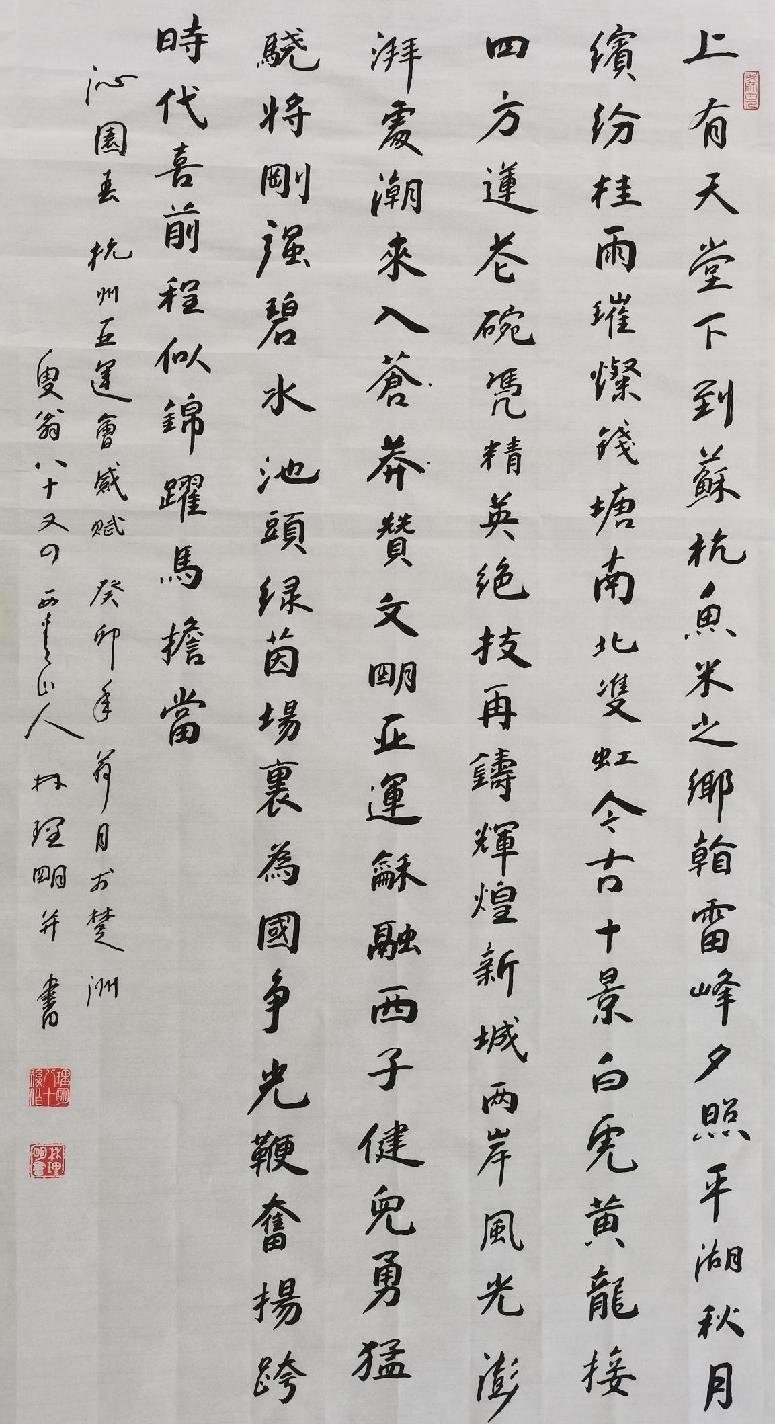 上有天堂下到蘇杭魚米之鄉翰雷峰夕照平湖秋月
繽紛桂雨璀燦錢塘南北雙虹今古十景白兎黄龍接
四方蓮花碗凴精英绝技再鑄輝煌新城兩岸風光澎
湃處潮來入蒼莽贊文明亚運龢融西子健兒勇猛
驍將剛强碧水池頭绿茵場裏為國争光鞭奮揚跨
時代喜前程似錦躍馬擔當
沁園春杭州亚運會感赋癸卯年荷月於楚洲
叟翁八十又四西青山人林理明并書